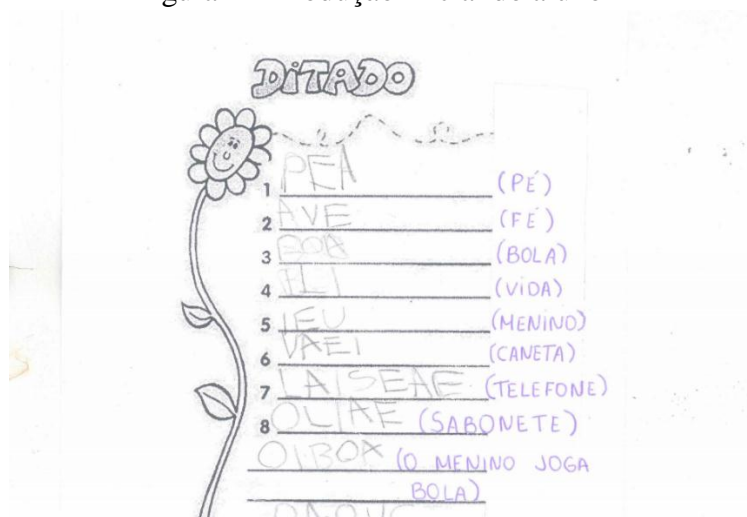 DITADO
1 PEA (PÉ)
2 AVE (FÉ)
3 BOA (BOLA)
4 (VIDA)
5 IEU (MENINO)
6 VAEI (CANETA)
7 LAISEAE (TELEFONE)
8 OLIAE (SABONETE)
OIBOA (O MENINO JOGA
BOLA)